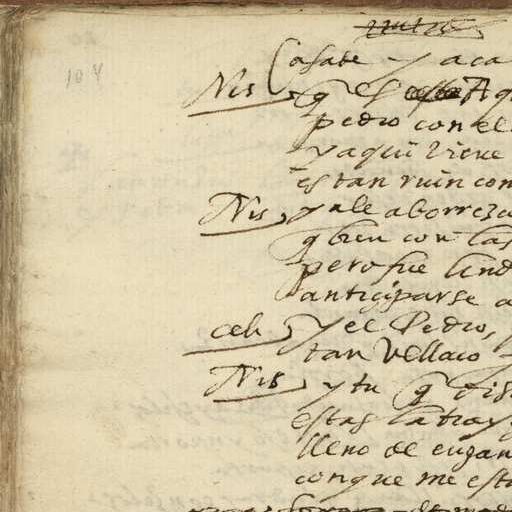 104
Casate y aca
Nis que es Aq
pedro con el
y aqui viene
es tan ruin con
Nis ya le aborrezc
q bien con las
pero fue lind
anticiparse a
Celi y el Pedro,
tan vellaco
Nis y tu q dis
estas la tray
lleno de engan
con que me est